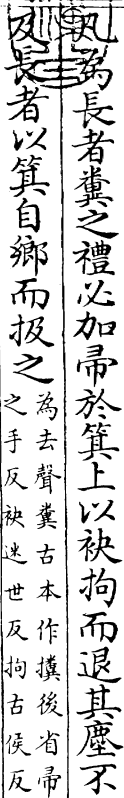 凡為長者糞之禮必加帚於箕上以袂拘而退其塵不
及長者以箕自鄉而扱之
為去聲糞古本作攩後省帚
之手反袂迷世反拘古侯反